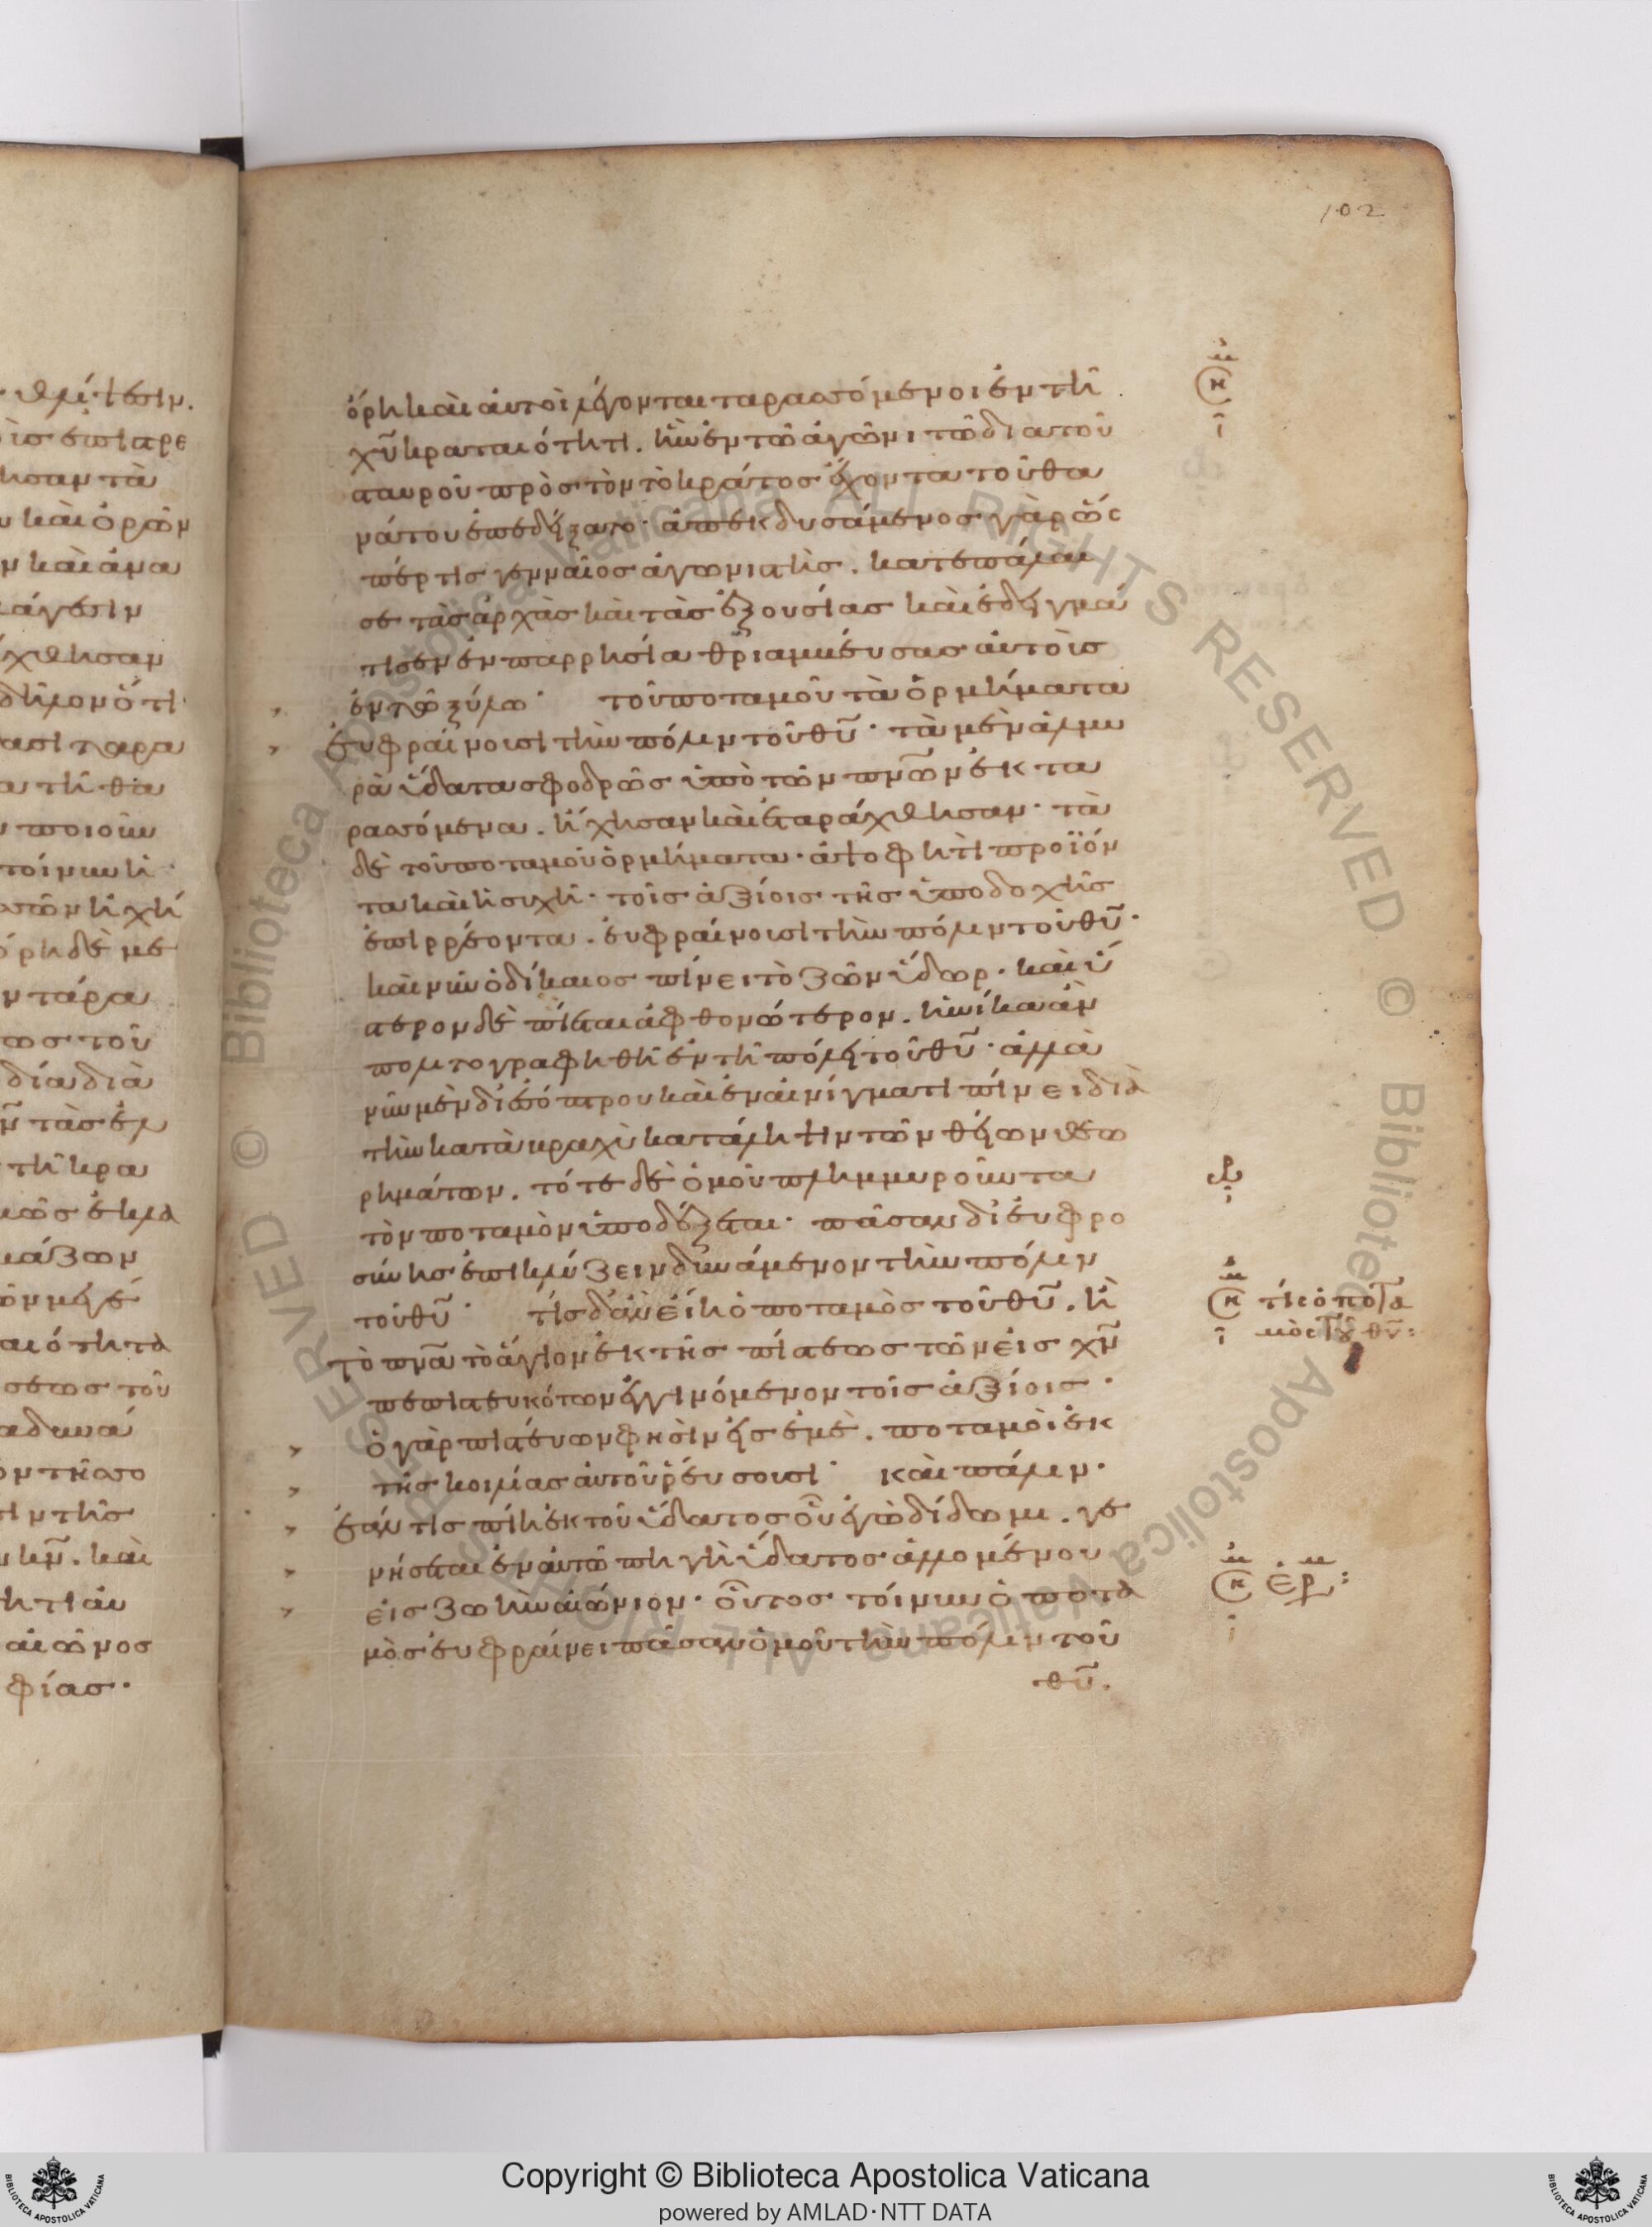 102
ὄρη καὶ αὐτοὶ λέγονται ταρασσόμενοι ἐν τῆ
χῦ κραταιότητι. ἣν ἐν τῶ ἀγῶνι τῶ διὰ τοῦ
σταυροῦ πρὸς τὸν τὸ κράτος ἔχοντα τοῦ θα
νάτου ἐπεδείξατο· ἀπεκδυσάμενος γὰρ ὥς
πέρ τις γενναῖος ἀγωνιστὴς. κατεπάλαι
σε τὰς ἀρχὰς καὶ τὰς ἐξουσίας καὶ ἐδειγμά
τισεν ἐν παρρησία θριαμβεύσας αὐτοὺς
ἐν τῶ ξύλω· τοῦ ποταμοῦ τὰ ὁρμήματα
εὐφραίνουσι τὴν πόλιν τοῦ θῦ· τὰ μὲν ἁλμυ
ρὰ ὕδατα σφοδρῶς ὑπὸ τῶν πνῶν ἐκτα
ρασσόμενα. ἤχησαν καὶ ἐταράχθησαν· τὰ
δὲ τοῦ ποταμοῦ ὁρμήματα· ἀψοφητὶ προϊόν
τα καὶ ἡσυχῆ· τοῖς ἀξίοις τῆς ὑποδοχῆς
ἐπιρρέοντα. εὐφραίνουσι τὴν πόλιν τοῦ θῦ·
καὶ νῦν ὁ δίκαιος πίνει τὸ ζῶν ὕδωρ. καὶ ὕ
στερον δὲ πίεται ἀφθονώτερον. ἡνίκα ἂν
πολιτογραφηθῆ ἐν τῆ πόλει τοῦ θῦ· ἀλλὰ
νῦν μὲν δι' ἐσόπτρου καὶ ἐν αἰνίγματι πίνει διὰ
τὴν κατὰ βραχὺ κατάληψιν τῶν θείων θεω
ρημάτων. τότε δὲ ὁμοῦ πλημμυροῦντα
τὸν ποταμὸν ὑποδέξεται· πᾶσαν δι' εὐφρο
σύνης ἐπικλύζειν δυνάμενον τὴν πόλιν
τοῦ θῦ· τίς δ' ἂν εἴη ὁ ποταμὸς τοῦ θῦ. ἢ
τὸ πνᾶ τὸ ἅγιον ἐκ τῆς πίστεως τῶν εἰς χν
πεπιστευκότων ἐγγινόμενον τοῖς ἀξίοις·
ὁ γὰρ πιστεύων φησὶν εἰς ἐμὲ. ποταμοὶ ἐκ
τῆς κοιλίας αὐτοῦ ῥεύσουσι· καὶ πάλιν·
ἐάν τις πίη ἐκ τοῦ ὕδατος οὗ ἐγὼ δίδωμι. γε
νήσεται ἐν αὐτῶ πηγὴ ὕδατος ἁλλομένου
εἰς ζωὴν αἰώνιον· οὗτος τοίνυν ὁ ποτα
μὸς εὐφραίνει πᾶσαν ὁμοῦ τὴν πόλιν τοῦ
θῦ.
τίς ὁ ποτα
μὸς τοῦ θῦ:
Copyright © Biblioteca Apostolica Vaticana
powered by AMLAD·NTT DATA